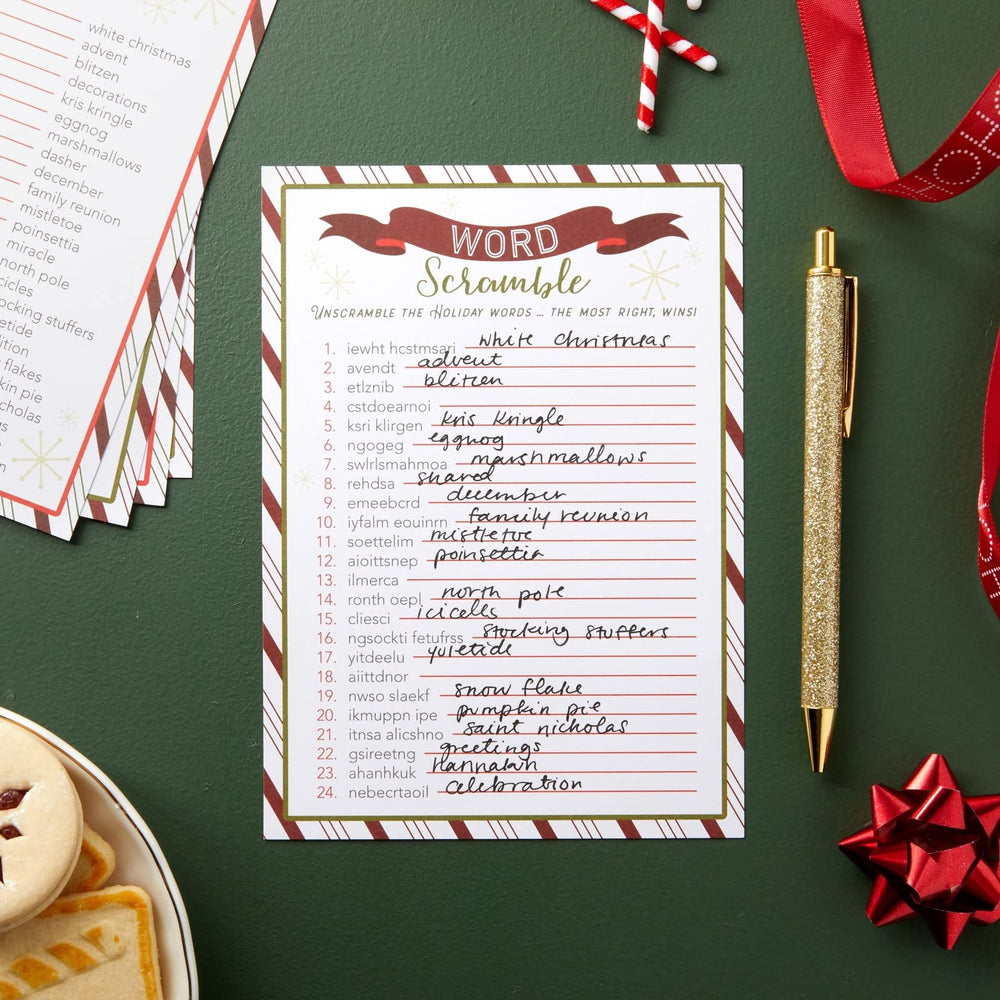 white christmas
advent
blitzen
decorations
kris kringle
eggnog
marshmallows
dasher
december
family reunion
mistletoe
poinsettia
miracle
north pole
icles
ocking stuffers
etide
dition
flakes
kin pie
cholas
WORD
Scramble
UNSCRAMBLE THE HOLIDAY WORDS ... THE MOST RIGHT, WINS!
1. iewht hcstmsari white christmas
2. avendt advent
3. etlznib blitzen
4. cstdoearnoi
5. ksri klirgen kris kringle
6. ngogeg eggnog
7. swlrlsmahmoa marshmallows
8. rehdsa shared
9. emeebcrd december
10. iyfalm eouinrn family reunion
11. soettelim mistletoe
12. aioittsnep poinsettia
13. ilmerca
14. ronth oepl north pole
15. cliesci icicells
16. ngsockti fetufrss stocking stuffers
17. yitdeelu yuletide
18. aiittdnor
19. nwso slaekf snow flake
20. ikmuppn ipe pumpkin pie
21. itnsa alicshno saint nicholas
22. gsireetng greetings
23. ahanhkuk
24. nebecrtaoil celebration